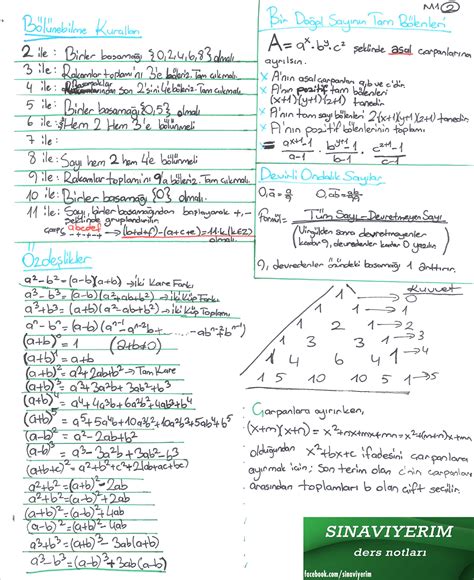 M1 2
Bölünebilme Kuralları
2 ile : Birler basamağı {0,2,4,6,8} olmalı.
3 ile : Rakamlar toplamını 3'e böleriz. Tam çıkmalı.
4 ile :
5 ile : Birler basamağı {0,5} olmalı
6 ile : Hem 2 Hem 3'e bölünmeli
7 ile :
8 ile :
9 ile : Rakamlar toplamını 9'a böleriz. Tam çıkmalı.
10 ile : Birler basamağı {0} olmalı.
11 ile : Sayı, birler basamağından başlayarak +,-
şeklinde gruplandırılır.
abcdef → (b+d+f)-(a+c+e)=11.k (k∈Z)
olmalı.
Özdeşlikler
a²-b² = (a-b)(a+b) → İki Kare Farkı
a³-b³ = (a-b)(a²+ab+b²) → İki Küp Farkı
a³+b³ = (a+b)(a²-ab+b²) → İki Küp Toplamı
aⁿ-bⁿ = (a-b)(aⁿ⁻¹+aⁿ⁻²b+ ... +abⁿ⁻²+bⁿ⁻¹)
(a+b)⁰ = 1 (a+b≠0)
(a+b)¹ = a+b
(a+b)² = a²+2ab+b² → Tam Kare
(a+b)³ = a³+3a²b+3ab²+b³
(a+b)⁴ = a⁴+4a³b+6a²b²+4ab³+b⁴
(a+b)⁵ = a⁵+5a⁴b+10a³b²+10a²b³+5ab⁴+b⁵
(a-b)² = a²-2ab+b²
(a-b)³ = a³-3a²b+3ab²-b³
(a+b+c)² = a²+b²+c²+2(ab+ac+bc)
a²+b² = (a+b)²-2ab
a²+b² = (a-b)²+2ab
(a+b)² = (a-b)²+4ab
(a-b)² = (a+b)²-4ab
a³+b³ = (a+b)³-3ab(a+b)
a³-b³ = (a-b)³+3ab(a-b)
Bir Doğal Sayının Tam Bölenleri
A = aˣ.bʸ.cᶻ şeklinde asal çarpanlarına
ayrılsın.
* A'nın asal çarpanları a,b ve c'dir.
* A'nın pozitif tam bölenleri
(x+1)(y+1)(z+1) tanedir.
* A'nın tam sayı bölenleri 2(x+1)(y+1)(z+1) tanedir
* A'nın pozitif bölenlerinin toplamı
= aˣ⁺¹-1/a-1 . bʸ⁺¹-1/b-1 . cᶻ⁺¹-1/c-1
Devirli Ondalık Sayılar
Formül = Tüm Sayı - Devretmeyen Sayı
(Virgülden sonra devredenler
kadar 9, devretmeyenler kadar 0 yazılır)
9, devredenler önündeki basamağı 1 arttırır.
Kuvvet
1 → 0
1 1 → 1
1 2 1 → 2
1 3 3 1 → 3
1 4 6 4 1 → 4
1 5 10 10 5 1 → 5
Çarpanlara ayırırken,
(x+m)(x+n) = x²+nx+mx+mn = x²+(m+n)x+m.n
olduğundan x²+bx+c ifadesini çarpanlara
ayırmak için; Son terim olan c'nin çarpanları
arasından toplamları b olan çift seçilir.
SINAVIYERIM
ders notları
facebook.com/sinaviyerim